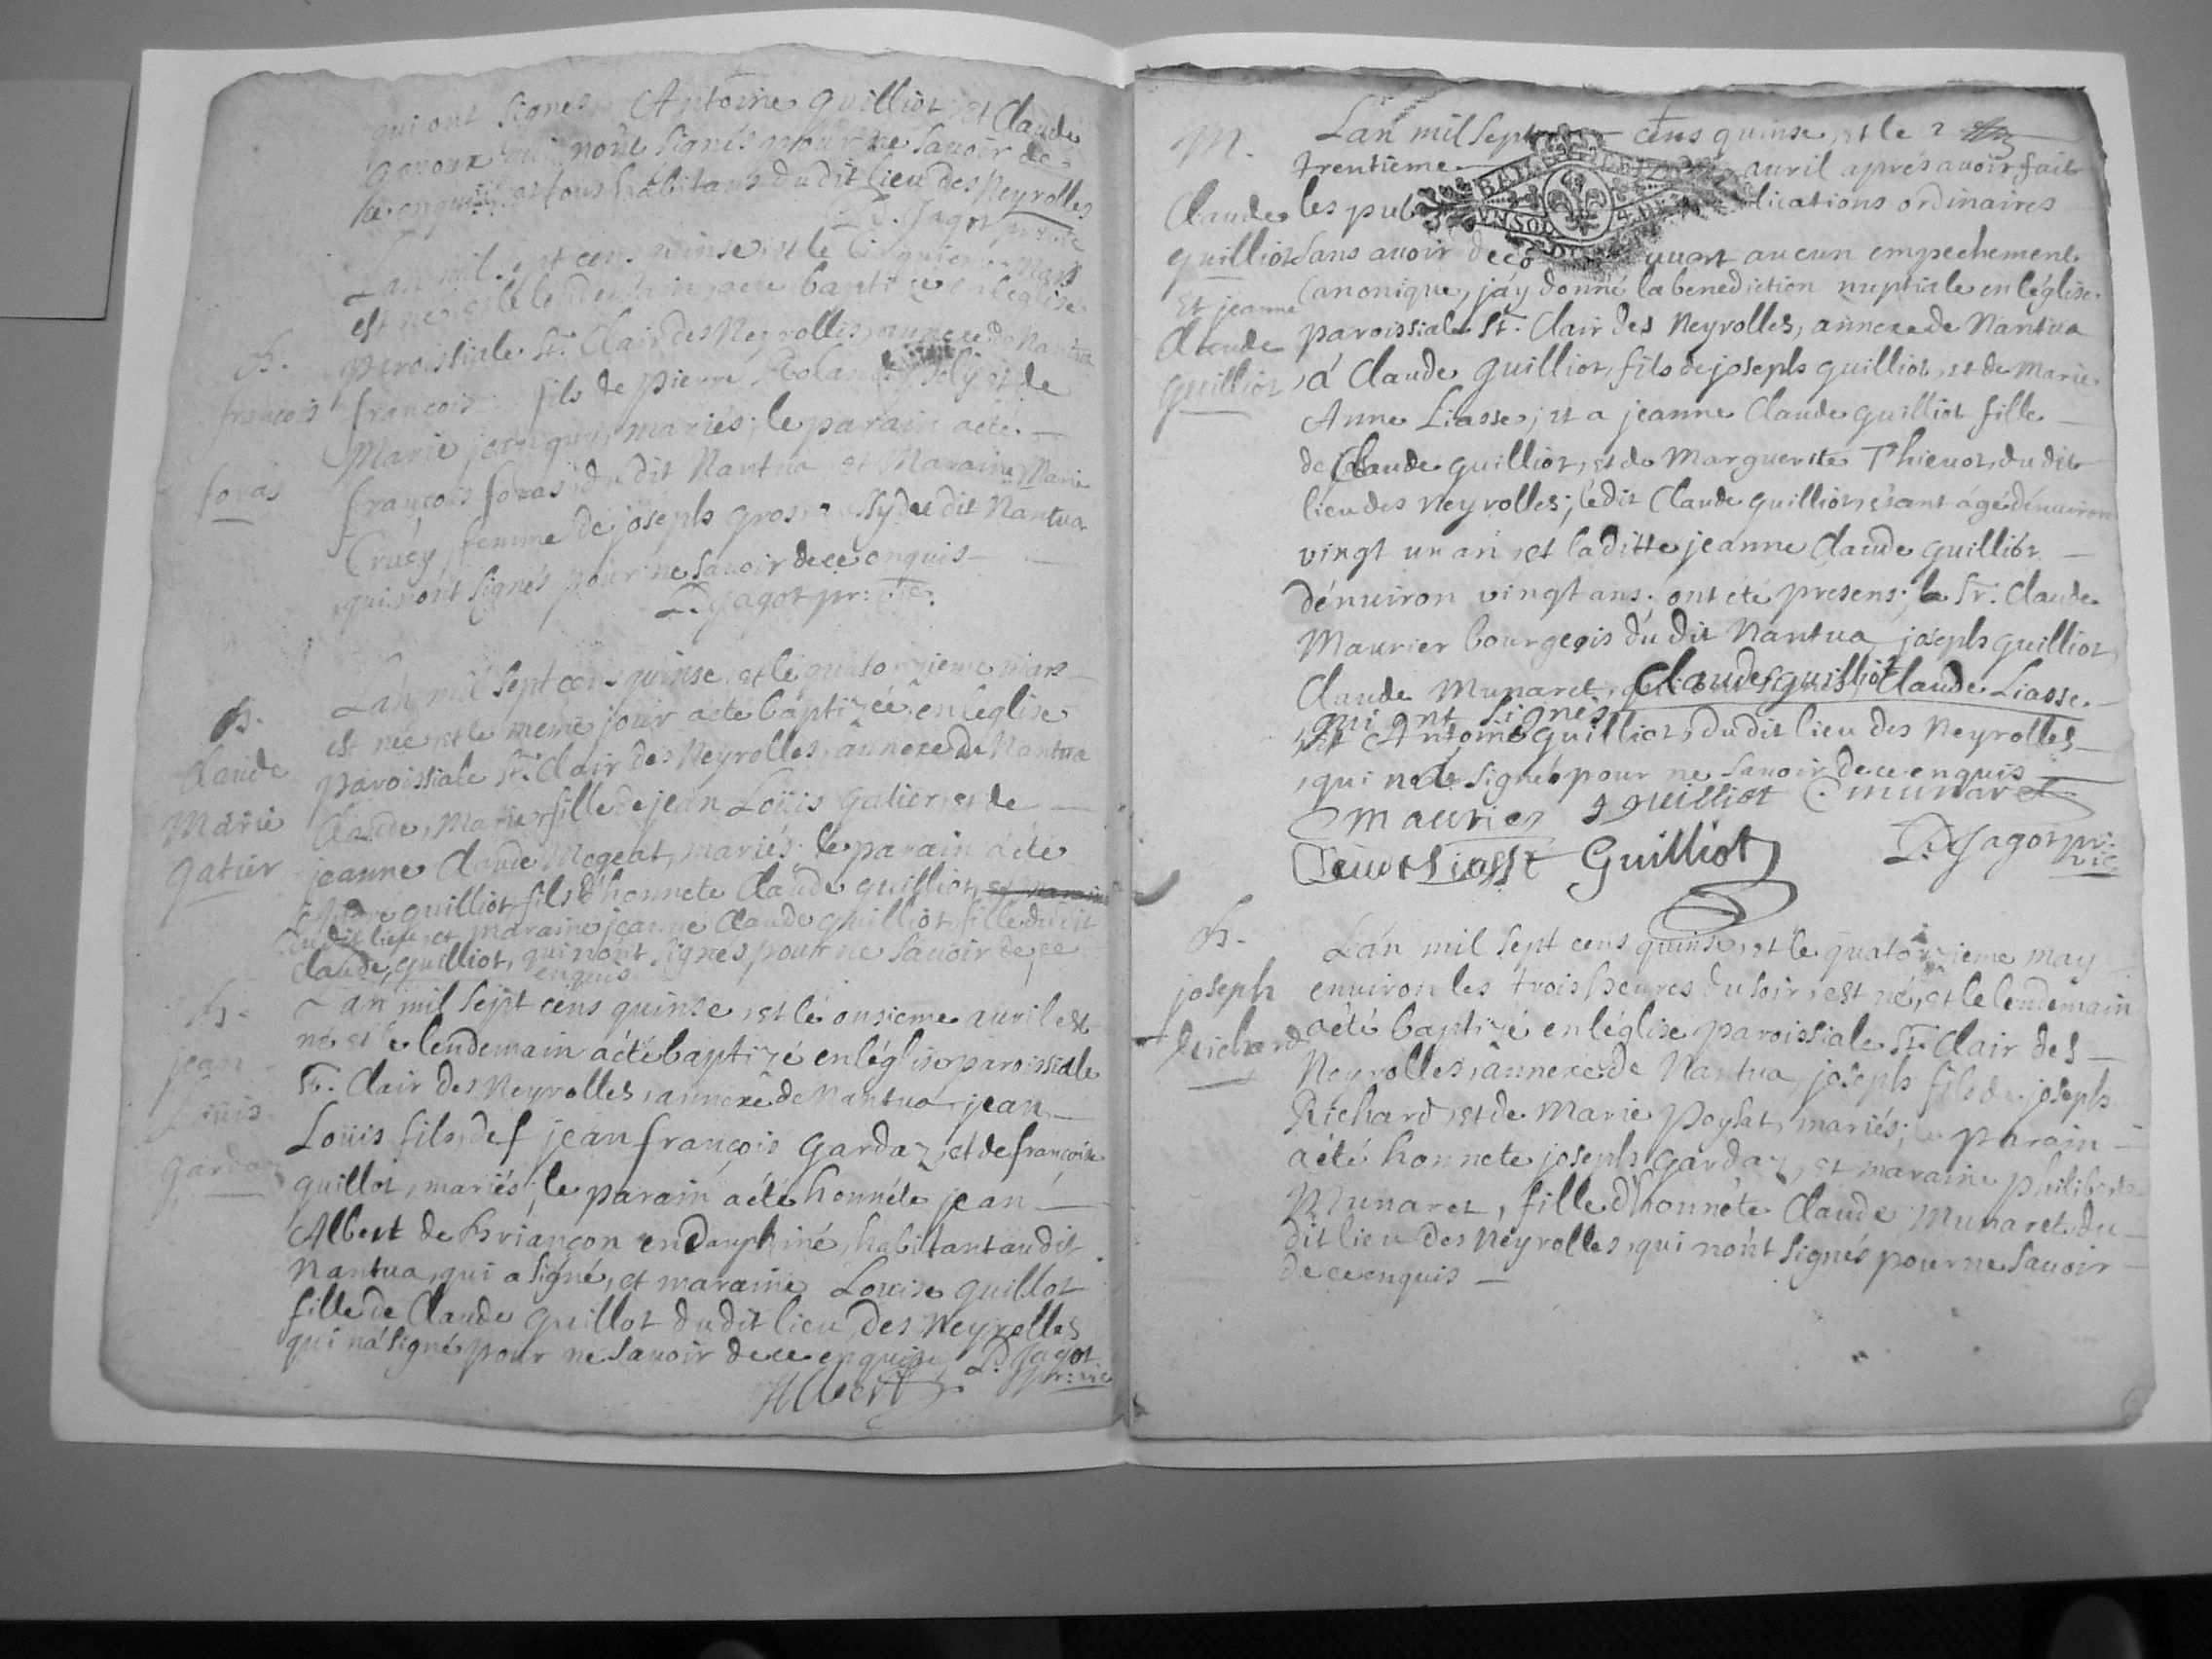 qui ont Signes, Antoine guilliot, et Claude
qui n'ont Signés pour ne Savoir de
ce enquis, et tous habitans du dit lieu des Neyrolles
D. Jagot pr: vic
L'an mil sept cens quinse, et le cinquieme Mars
est né, et le lendemain a été baptizé en l'église
paroissiale St. Clair des Neyrolles, annexe de Nantua
B.
françois
foras
françois fils de pierre Roland Joly et de
Marie mariés; le parain a été
françois foras du dit Nantua et Maraine Marie
Crucy femme de joseph gros, du dit Nantua
qui n'ont Signés pour ne Savoir de ce enquis
D. Jagot pr: vic.
L'an mil Sept cens quinse, et le quatorzieme mars
est née, et le meme jour a été baptizée en l'eglise
paroissiale St. Clair des Neyrolles, annexe de Nantua
B.
Claude
Marie
gatier
Claude, Marie fille de jean Loüis gatier, et de
jeanne Claude Mogeat, mariés; le parain a été
guilliot, fils d'honnete Claude guilliot, et maraine
du dit lieu, et maraine jeanne Claude guilliot, fille du dit
Claude guilliot, qui n'ont Signés pour ne Savoir de ce
enquis
B.
jean
Loüis
gardaz
L'an mil Sept cens quinse, et le onsieme avril est
né, et le lendemain a été baptizé en l'église paroissiale
St. Clair des Neyrolles, annexe de Nantua, jean
Loüis fils, de jean françois gardaz, et de françoise
guillot, mariés; le parain a été honnéte jean
Albert de Briançon en Dauphiné, habitant au dit
Nantua, qui a Signé, et maraine Louise guillot
fille de Claude guillot du dit lieu des Neyrolles
qui n'a Signé pour ne Savoir de ce enquise D. Jagot
pr: vic
Albert
M.
Claude
guilliot
Et jeanne
Claude
guilliot
L'an mil Sept cens quinse, et le
trentieme avril aprés avoir fait
les publications ordinaires
Sans avoir decouvert aucun empechement
Canonique, j'ay donné la benediction nuptiale en l'église
paroissiale St. Clair des Neyrolles, annexe de Nantua
à Claude guilliot, fils de joseph guilliot, et de Marie
Anne Liasse; et a jeanne Claude guilliot fille
de Claude guilliot, et de Marguerite Thieuot, du dit
lieu des Neyrolles; ledit Claude guilliot, étant âgé d'enuiron
vingt un an, et laditte jeanne Claude guilliot
d'enuiron vingt ans; ont été presens; le Sr. Claude
Maurier bourgeois du dit Nantua, joseph guilliot
Claude Munaret, Claude guilliot Claude Liasse
qui ont Signés
et Antoine guilliot, du dit lieu des Neyrolles
qui n'a Signé pour ne Savoir de ce enquis
Maurier J guilliot C. munaret
Claude Liasse Guilliot D. Jagot pr: vic
B.
joseph
Richard
L'an mil Sept cens quinse, et le quatorzieme may
environ les trois heures du soir, est né, et le lendemain
a été baptizé en l'église paroissiale St. Clair des
Neyrolles, annexe de Nantua, joseph fils de joseph
Richard, et de Marie Poysat, mariés; le parain
a été honnete joseph gardaz, et maraine philiberte
Munaret, fille d'honnéte Claude Munaret du
dit lieu des Neyrolles, qui n'ont Signés pour ne Savoir
de ce enquis